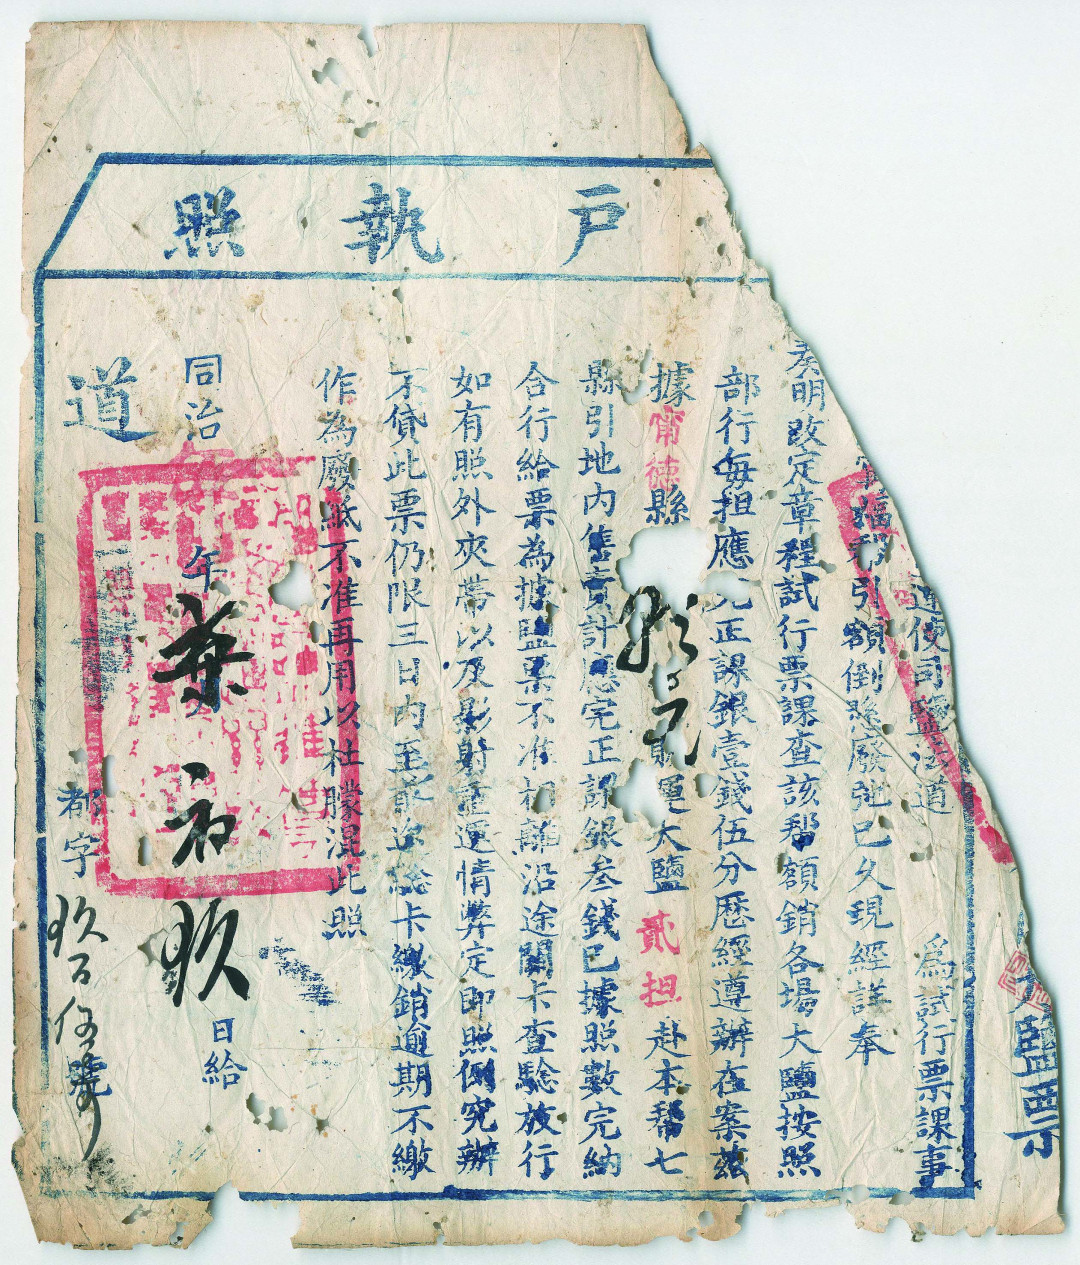 戶執照
運使司鹽法道 為試行票課事
福郡引額倒懸廢弛已久現經謹奉
奏明改定章程試行票課查該郡額銷各場大鹽按照
部行每担應完正課銀壹錢伍分歷經遵辦在案茲
據甯德縣 運大鹽貳担赴本郡七
縣引地內售賣計應完正課銀叁錢已據照數完納
合行給票為據鹽票不准相離沿途關卡查驗放行
如有照外夾帶以及影射重運情弊定即照例究辦
不貸此票仍限三日內至 總卡繳銷逾期不繳
作為廢紙不准再用以杜朦混此照
同治 年 月 玖 日給
道
都字 玖百伍 號
大鹽票